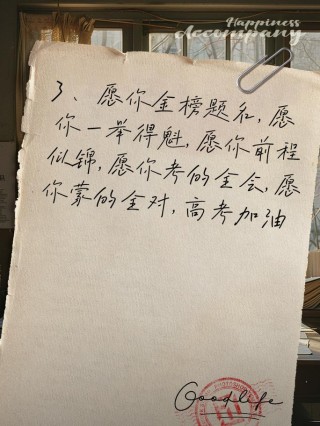 Happiness
Accompany
3、愿你金榜题名,愿
你一举得魁,愿你前程
似锦,愿你考的全会,愿
你蒙的全对,高考加油
Goodlife